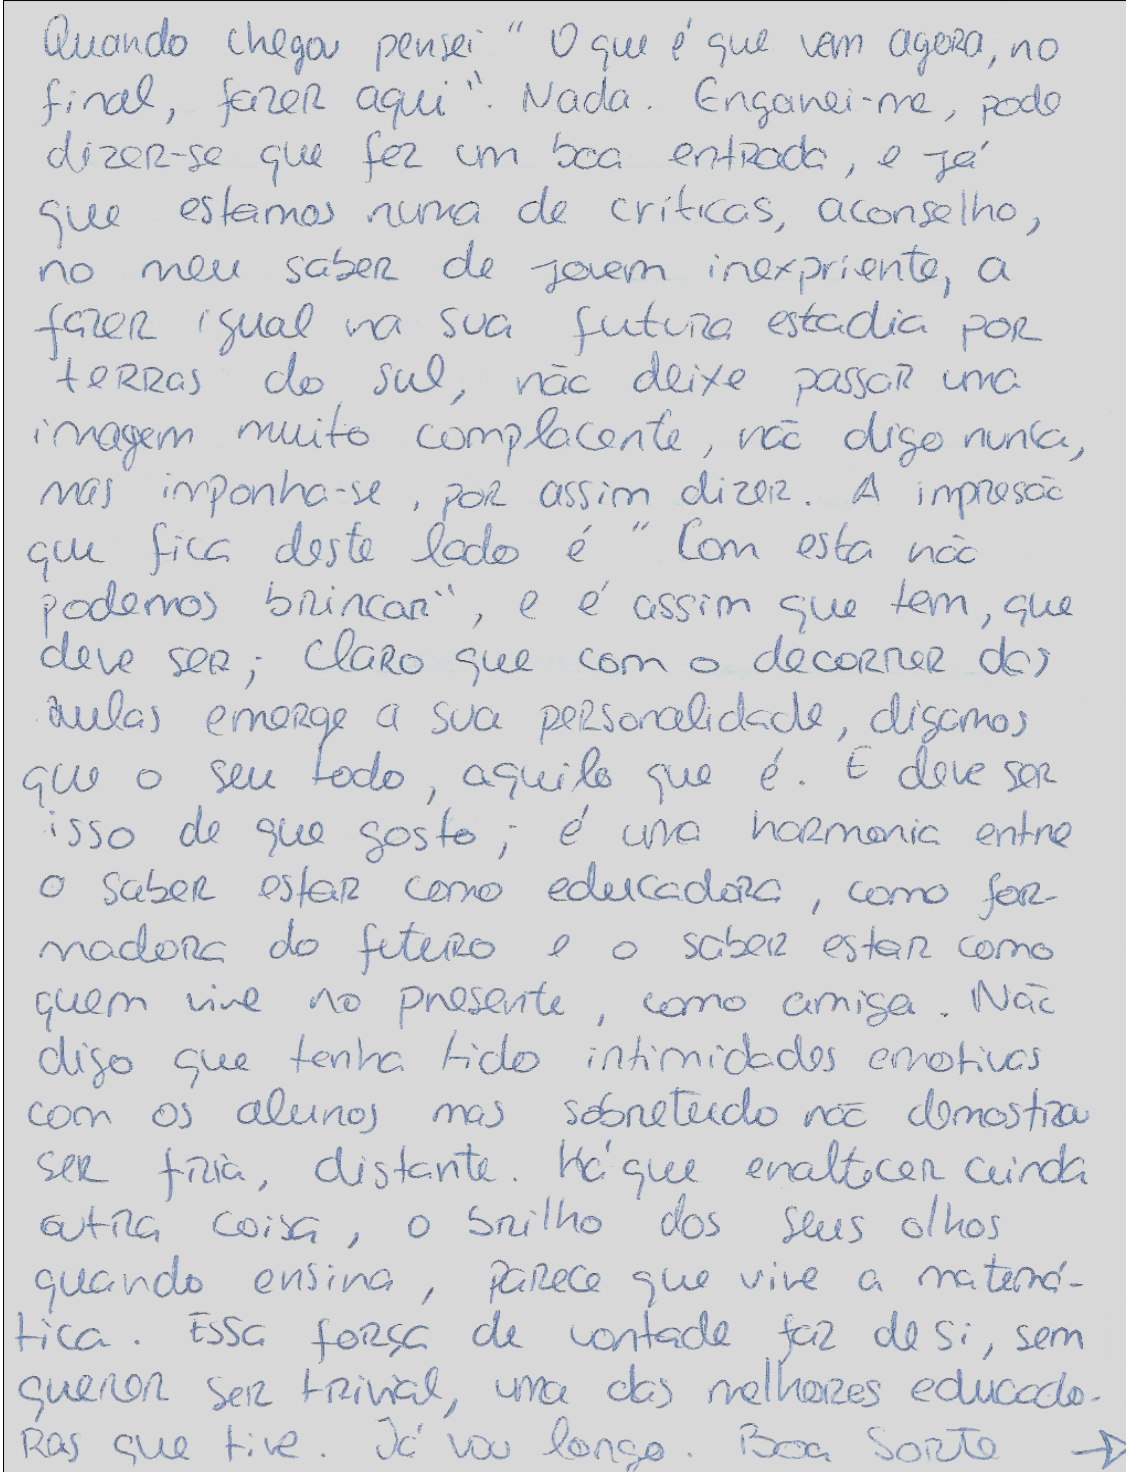 Quando chegou pensei "O que é que vem agora, no
final, fazer aqui". Nada. Enganei-me, pode
dizer-se que fez um boa entrada, e já
que estamos numa de críticas, aconselho,
no meu saber de jovem inexpriente, a
fazer igual na sua futura estadia por
terras do sul, não deixe passar uma
imagem muito complacente, não digo nunca,
mas imponha-se, por assim dizer. A impresão
que fica deste lado é "Com esta não
podemos brincar", e é assim que tem, que
deve ser; Claro que com o decorrer das
aulas emerge a sua personalidade, digamos
que o seu todo, aquilo que é. E deve ser
isso de que gosto; é uma harmonia entre
o saber estar como educadora, como for-
madora do futuro e o saber estar como
quem vive no presente, como amiga. Não
digo que tenha tido intimidades emotivas
com os alunos mas sobretudo não demostra
ser fria, distante. Há que enaltecer ainda
outra coisa, o brilho dos seus olhos
quando ensina, parece que vive a matemá-
tica. Essa força de vontade faz de si, sem
querer ser trivial, uma das melhores educado-
ras que tive. Já vou longo. Boa Sorte →